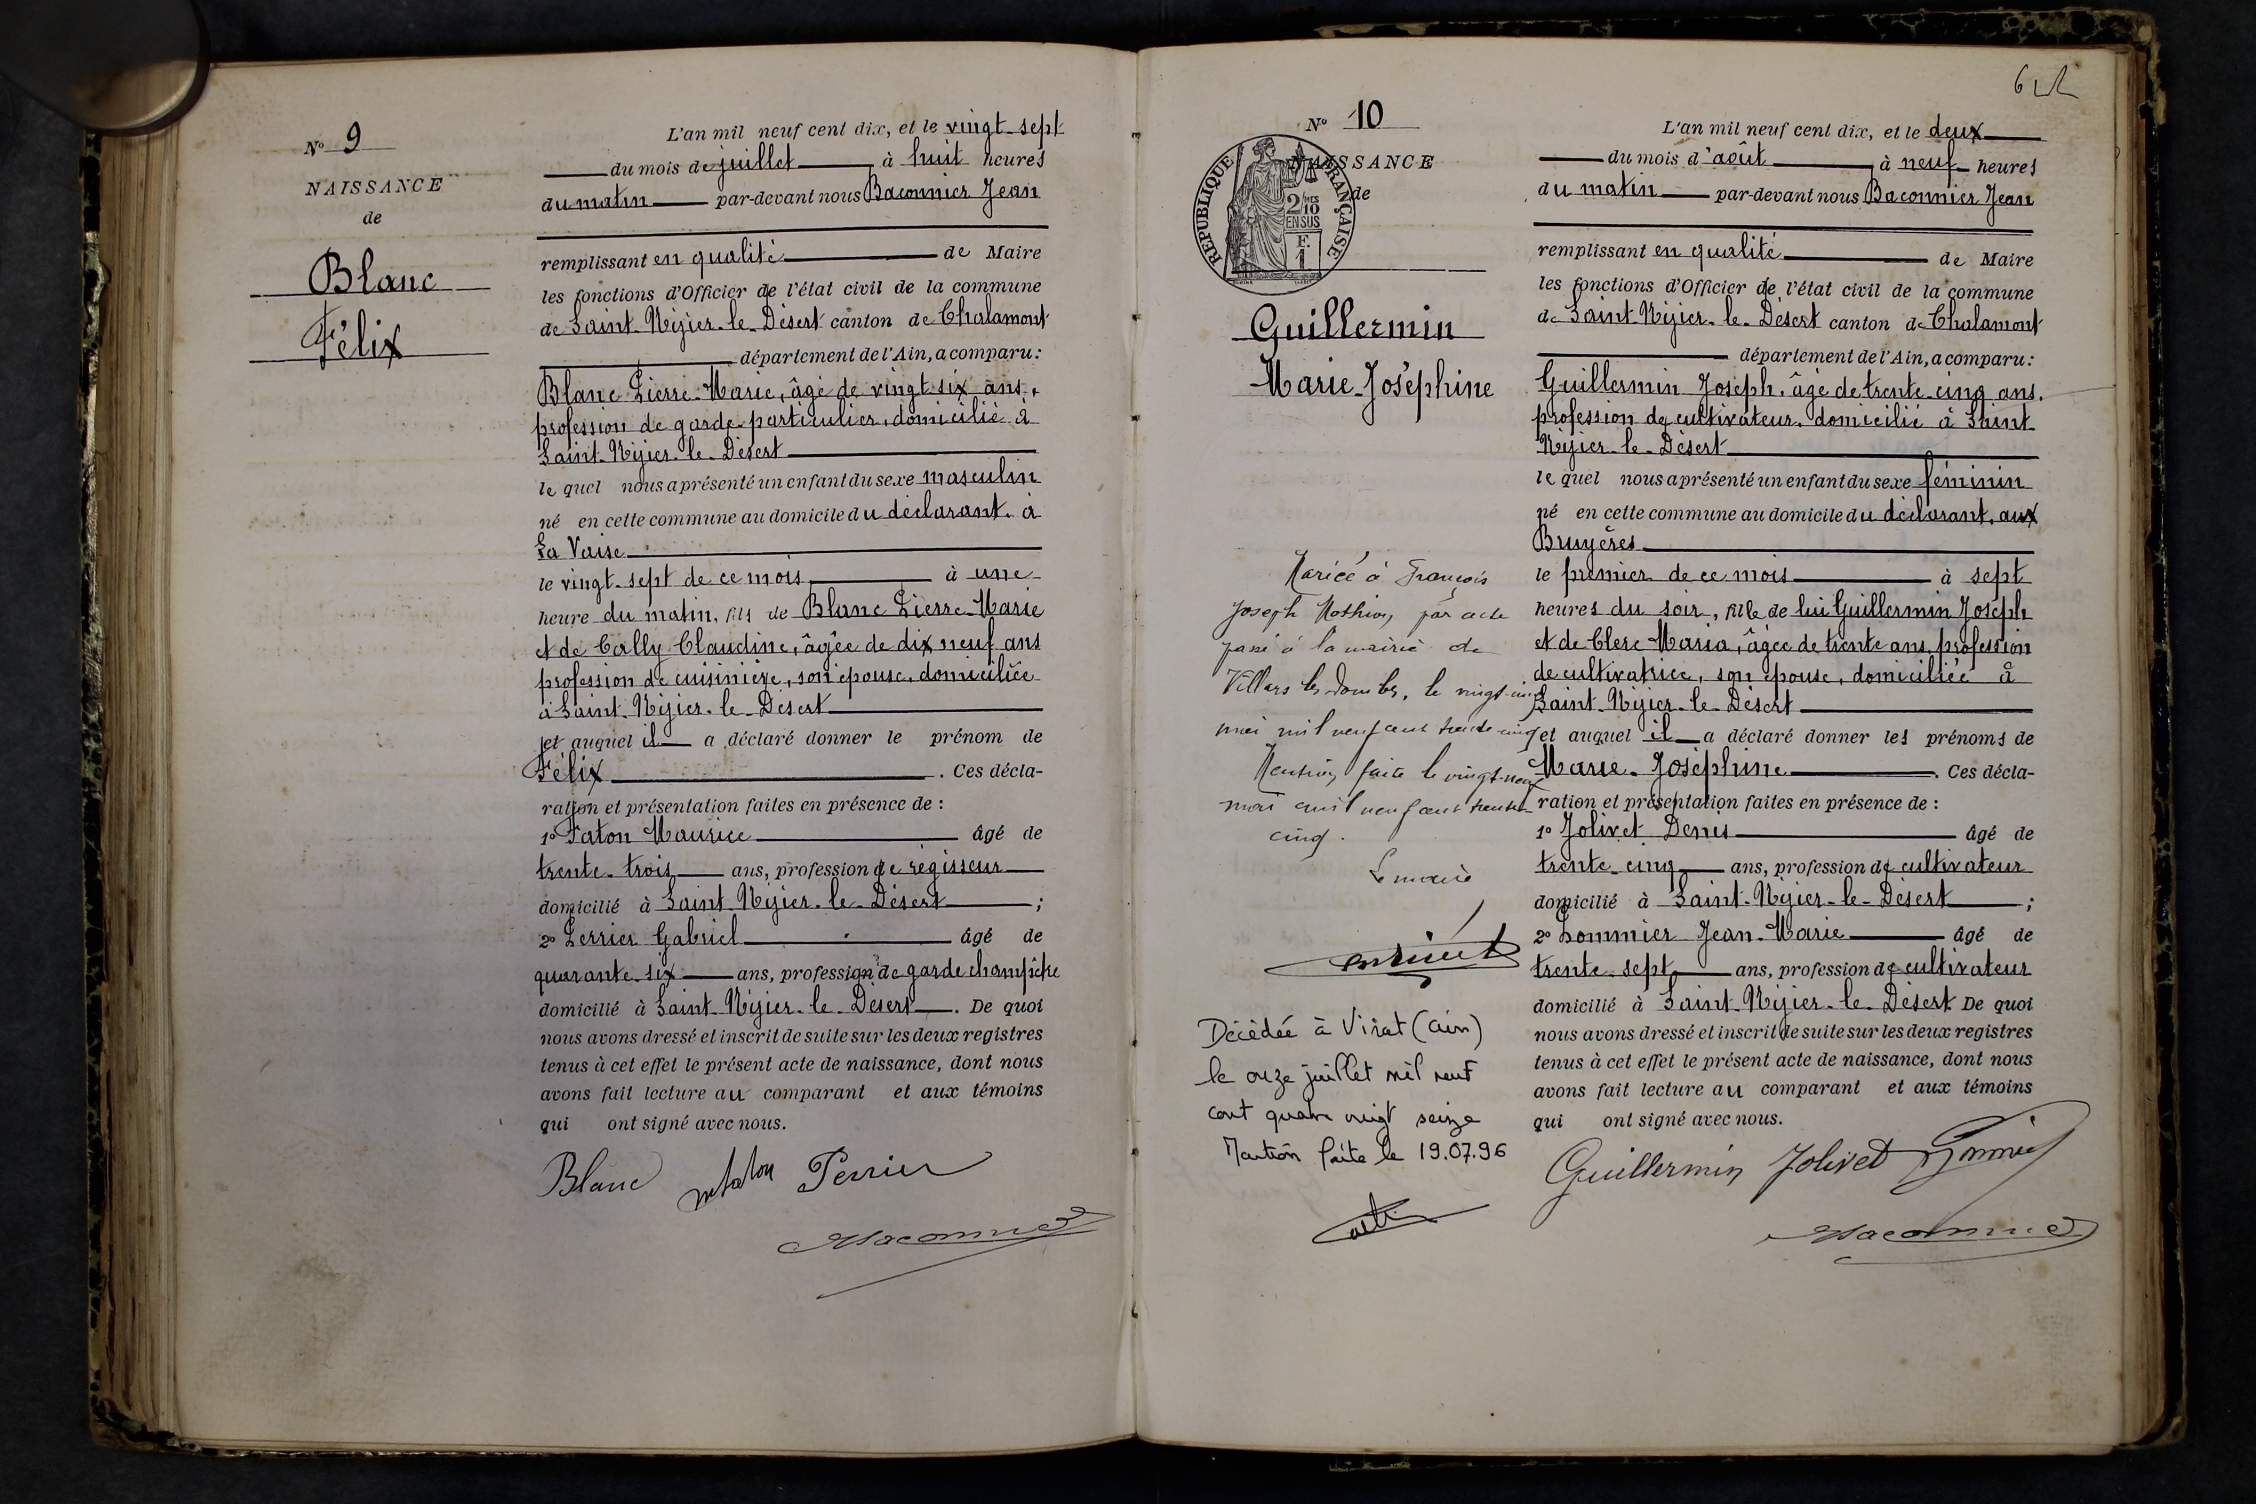 N° 9
NAISSANCE
de
Blanc
Félix
L'an mil neuf cent dix, et le vingt-sept
du mois de juillet à huit heures
du matin par-devant nous Baconnier Jean
remplissant en qualité de Maire
les fonctions d'Officier de l'état civil de la commune
de Saint-Nizier-le-Désert canton de Chalamont
département de l'Ain, a comparu:
Blanc Pierre-Marie, âgé de vingt-six ans,
profession de garde-particulier, domicilié à
Saint-Nizier-le-Désert
le quel nous a présenté un enfant du sexe masculin
né en cette commune au domicile du déclarant, à
La Vaise
le vingt-sept de ce mois à une
heure du matin, fils de Blanc Pierre-Marie
et de Cally Claudine, âgée de dix neuf ans
profession de cuisinière, son épouse, domiciliée
à Saint-Nizier-le-Désert
et auquel il a déclaré donner le prénom de
Félix. Ces décla-
ration et présentation faites en présence de :
1° Faton Maurice âgé de
trente-trois ans, profession de régisseur
domicilié à Saint-Nizier-le-Désert ;
2° Perrier Gabriel âgé de
quarante-six ans, profession de garde champêtre
domicilié à Saint-Nizier-le-Désert. De quoi
nous avons dressé et inscrit de suite sur les deux registres
tenus à cet effet le présent acte de naissance, dont nous
avons fait lecture au comparant et aux témoins
qui ont signé avec nous.
Blanc Perrier
Baconnier
642
N° 10
NAISSANCE
de
RÉPUBLIQUE FRANÇAISE
2/10 MES
EN SUS
F.
1
Guillermin
Marie-Joséphine
Mariée à François
Joseph Mathion, par acte
passé à la mairie de
Villars les Dombes, le vingt-cinq
mai mil neuf cent trente cinq
Mention faite le vingt-neuf
mai mil neuf cent trente-
cinq.
Le maire
Décédée à Viriat (Ain)
le onze juillet mil neuf
cent quatre vingt seize
Mention faite le 19.07.96
L'an mil neuf cent dix, et le deux
du mois d'août à neuf heures
du matin par-devant nous Baconnier Jean
remplissant en qualité de Maire
les fonctions d'Officier de l'état civil de la commune
de Saint-Nizier-le-Désert canton de Chalamont
département de l'Ain, a comparu:
Guillermin Joseph, âgé de trente-cinq ans,
profession de cultivateur, domicilié à Saint-
Nizier-le-Désert
le quel nous a présenté un enfant du sexe féminin
né en cette commune au domicile du déclarant, aux
Bruyères
le premier de ce mois à sept
heures du soir, fille de lui Guillermin Joseph
et de Clerc Maria, âgée de trente ans, profession
de cultivatrice, son épouse, domiciliée à
Saint-Nizier-le-Désert
et auquel il a déclaré donner les prénoms de
Marie-Joséphine. Ces décla-
ration et présentation faites en présence de :
1° Jolivet Denis âgé de
trente-cinq ans, profession de cultivateur
domicilié à Saint-Nizier-le-Désert ;
2° Pommier Jean-Marie âgé de
trente-sept ans, profession de cultivateur
domicilié à Saint-Nizier-le-Désert. De quoi
nous avons dressé et inscrit de suite sur les deux registres
tenus à cet effet le présent acte de naissance, dont nous
avons fait lecture au comparant et aux témoins
qui ont signé avec nous.
Guillermin Jolivet Pommier
Baconnier